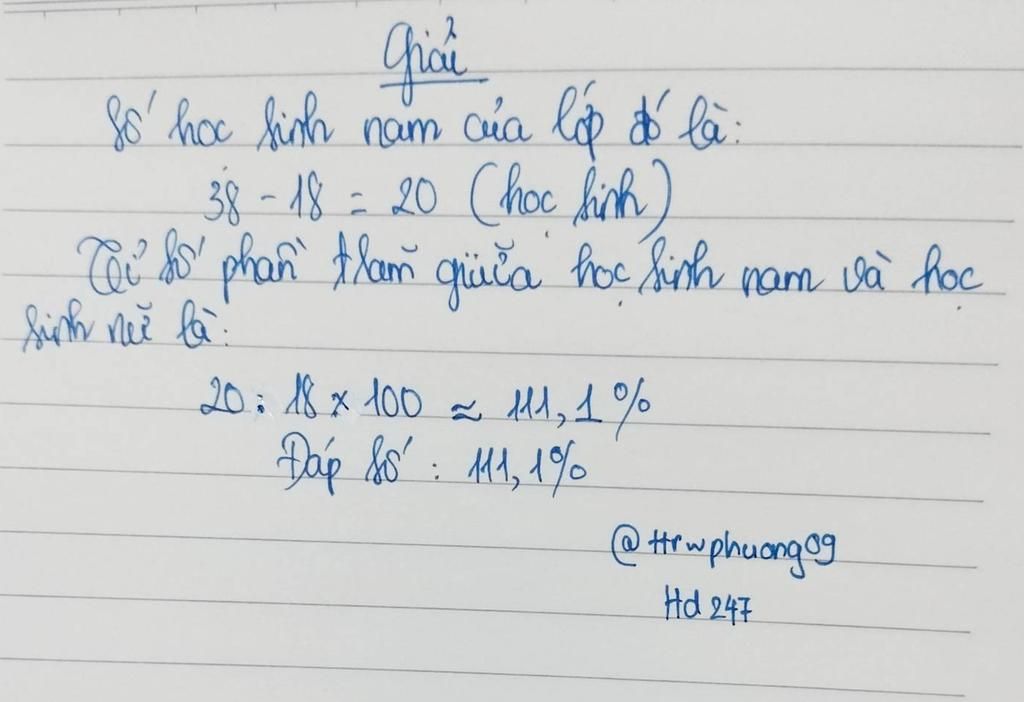 Giải
Số học sinh nam của lớp đó là:
38 - 18 = 20 (học sinh)
Tỉ số phần trăm giữa học sinh nam và học
sinh nữ là:
20 : 18 x 100 ≈ 111,1%
Đáp số : 111,1%
@ttrwphuong09
Hd 247